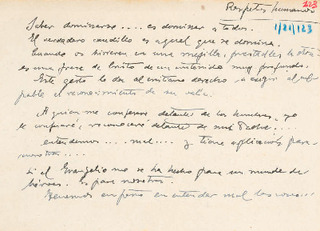 Respetos humanos
223
1/21/123
Saber dominarse.... es dominar a todos.
El verdadero caudillo es aquel que se domina.
Cuando os hirieren en una mejilla, presentadles la otra
es una frase de Cristo de un contenido muy profundo.
Este gesto le da al cristiano derecho a exigir al cul-
pable el reconocimiento de su
A quien me confesare delante de los hombres, yo
le confesaré, reconoceré delante de mi Padre....
entendemos.... mal.... y tiene aplicación para
nosotros....
Si el Evangelio no se ha hecho para un mundo de
héroes. Es para nosotros.
Tenemos empeño en entender mal las cosas...